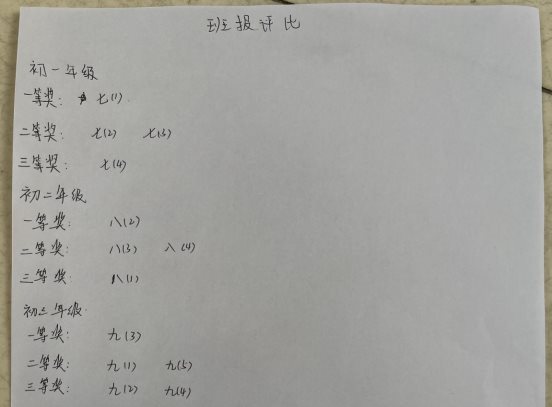 班报评比
初一年级
一等奖: 七(1)
二等奖: 七(2) 七(3)
三等奖: 七(4)
初二年级
一等奖: 八(2)
二等奖: 八(3) 八(4)
三等奖: 八(1)
初三年级
一等奖: 九(3)
二等奖: 九(1) 九(5)
三等奖: 九(2) 九(4)